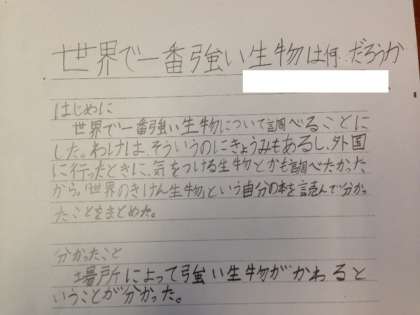 世界で一番強い生物は何だろうか
はじめに
世界で一番強い生物について調べることに
した。わけは、そういうのにきょうみもあるし、外国
に行ったときに、気をつける生物とかも調べたかった
から。「世界のきけん生物」という自分の本を読んで分かっ
たことをまとめた。
分かったこと
場所によって強い生物がかわると
いうことが分かった。